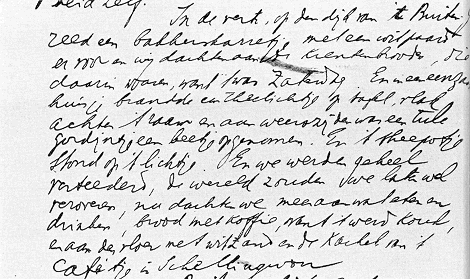 In de verte, op den dijk van 't Buiten
reed een bakkerskarretje, met een wit paard
er voor en wij dachten aan de krentenbrooden, die
daarin waren, want 't was Zaterdag. En in een
huisje brandde een theelichtje op tafel, vlak
achter 't raam en aan weerszij den was een tule
gordijntje een beetje opgenomen. En 't theepotje
stond op 't lichtje. En we werden geheel
verteederd, de wereld zouden we laten
veroveren, nu dachten we meer aan wat eten en
drinken, brood met koffie, want 't werd koud,
en aan den vloer met wit zand en de kachel van 't
Cafétje in Schellingwou